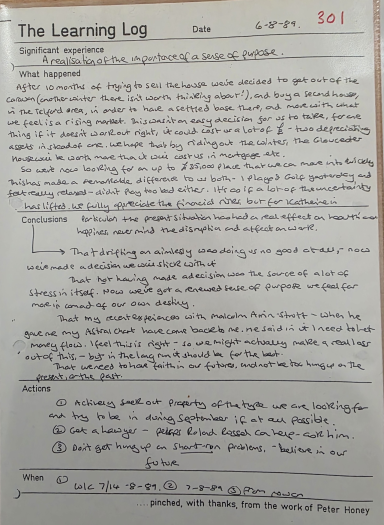 301
The Learning Log
Date 6-8-89.
Significant experience
A realisation of the importance of a sense of purpose.
What happened
After 10 months of trying to sell the house we've decided to get out of the
caravan (another winter there isn't worth thinking about!), and buy a second house,
in the Telford area, in order to have a settled base there, and move with what
we feel is a rising market. This wasn't an easy decision for us to take, for one
thing if it doesn't work out right, it could cost us a lot of £ - two depreciating
assets instead of one. We hope that by riding out the winter, the Gloucester
House will be worth more than it will cost us in mortgage etc.
So we're now looking for an up to place that we can move into quickly
This has made a remarkable difference to us both - I played Golf yesterday and
felt really relaxed - didn't play too bad either. It's as if a lot of the uncertainty
has lifted. We fully appreciate the financial risks, but for Katherine in
Conclusions particular the present situation has had a real effect on health and
happiness, never mind the disruption and affect on work.
That drifting on aimlessly was doing us no good at all, - now
we've made a decision we will stick with it
That not having made a decision was the source of a lot of
stress in itself. Now we've got a renewed sense of purpose we feel far
more in control of our own destiny.
That my recent experiences with Malcolm - when he
gave me my Astral Chart have come back to me. He said in it I need to let
money flow. I feel this is right - so we might actually make a real loss
out of this, - but in the long run it should be for the best.
That we need to have faith in our futures, and not be too hung up on the
present, or the past.
Actions
① Actively seek out property of the type we are looking for
and try to be in during September if at all possible.
② Get a lawyer - perhaps Roland can help - ask him.
③ Don't get hung up on short-run problems, - believe in our
future
When ① w/c 7/14-8-89, ② 7-8-89 ③ From now on
.... pinched, with thanks, from the work of Peter Honey